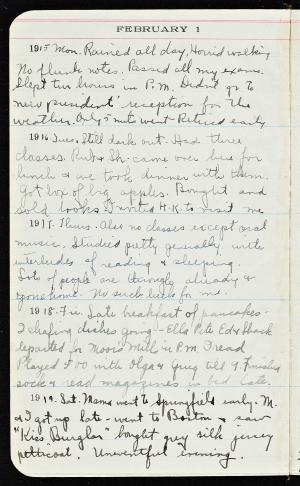 FEBRUARY 1
1915 Mon. Rained all day, Horrid walking
No flunk notes. Passed all my exams.
Slept two hours in P.M. Didn't go to
new president' reception for the
weather. Only 5 mits went Retired early
1916 Tues. Still dark out. Had three
classes. Rub & Sh. came over here for
lunch & we took dinner with them.
Got box of big apples. Bought and
sold books. Invited H.K. to visit me
1917. Thurs. Also no classes except oral
music. Studied pretty generally with
interludes of reading & sleeping.
Lots of people are through already &
gone home. No such luck for me.
1918. Fri. Late breakfast of pancakes-
2 chafing dishes going - Ella Pete Ed &
departed for Moors Mill in P.M. I read
Played 500 with Olga & Greg till 9. Finished
sock & read magazines in bed late.
1919. Sat. Mama went to Springfield early. M.
& I got up late - went to Boston & saw
"Kiss Burglar" bought grey silk jersey
petticoat. Uneventful evening.